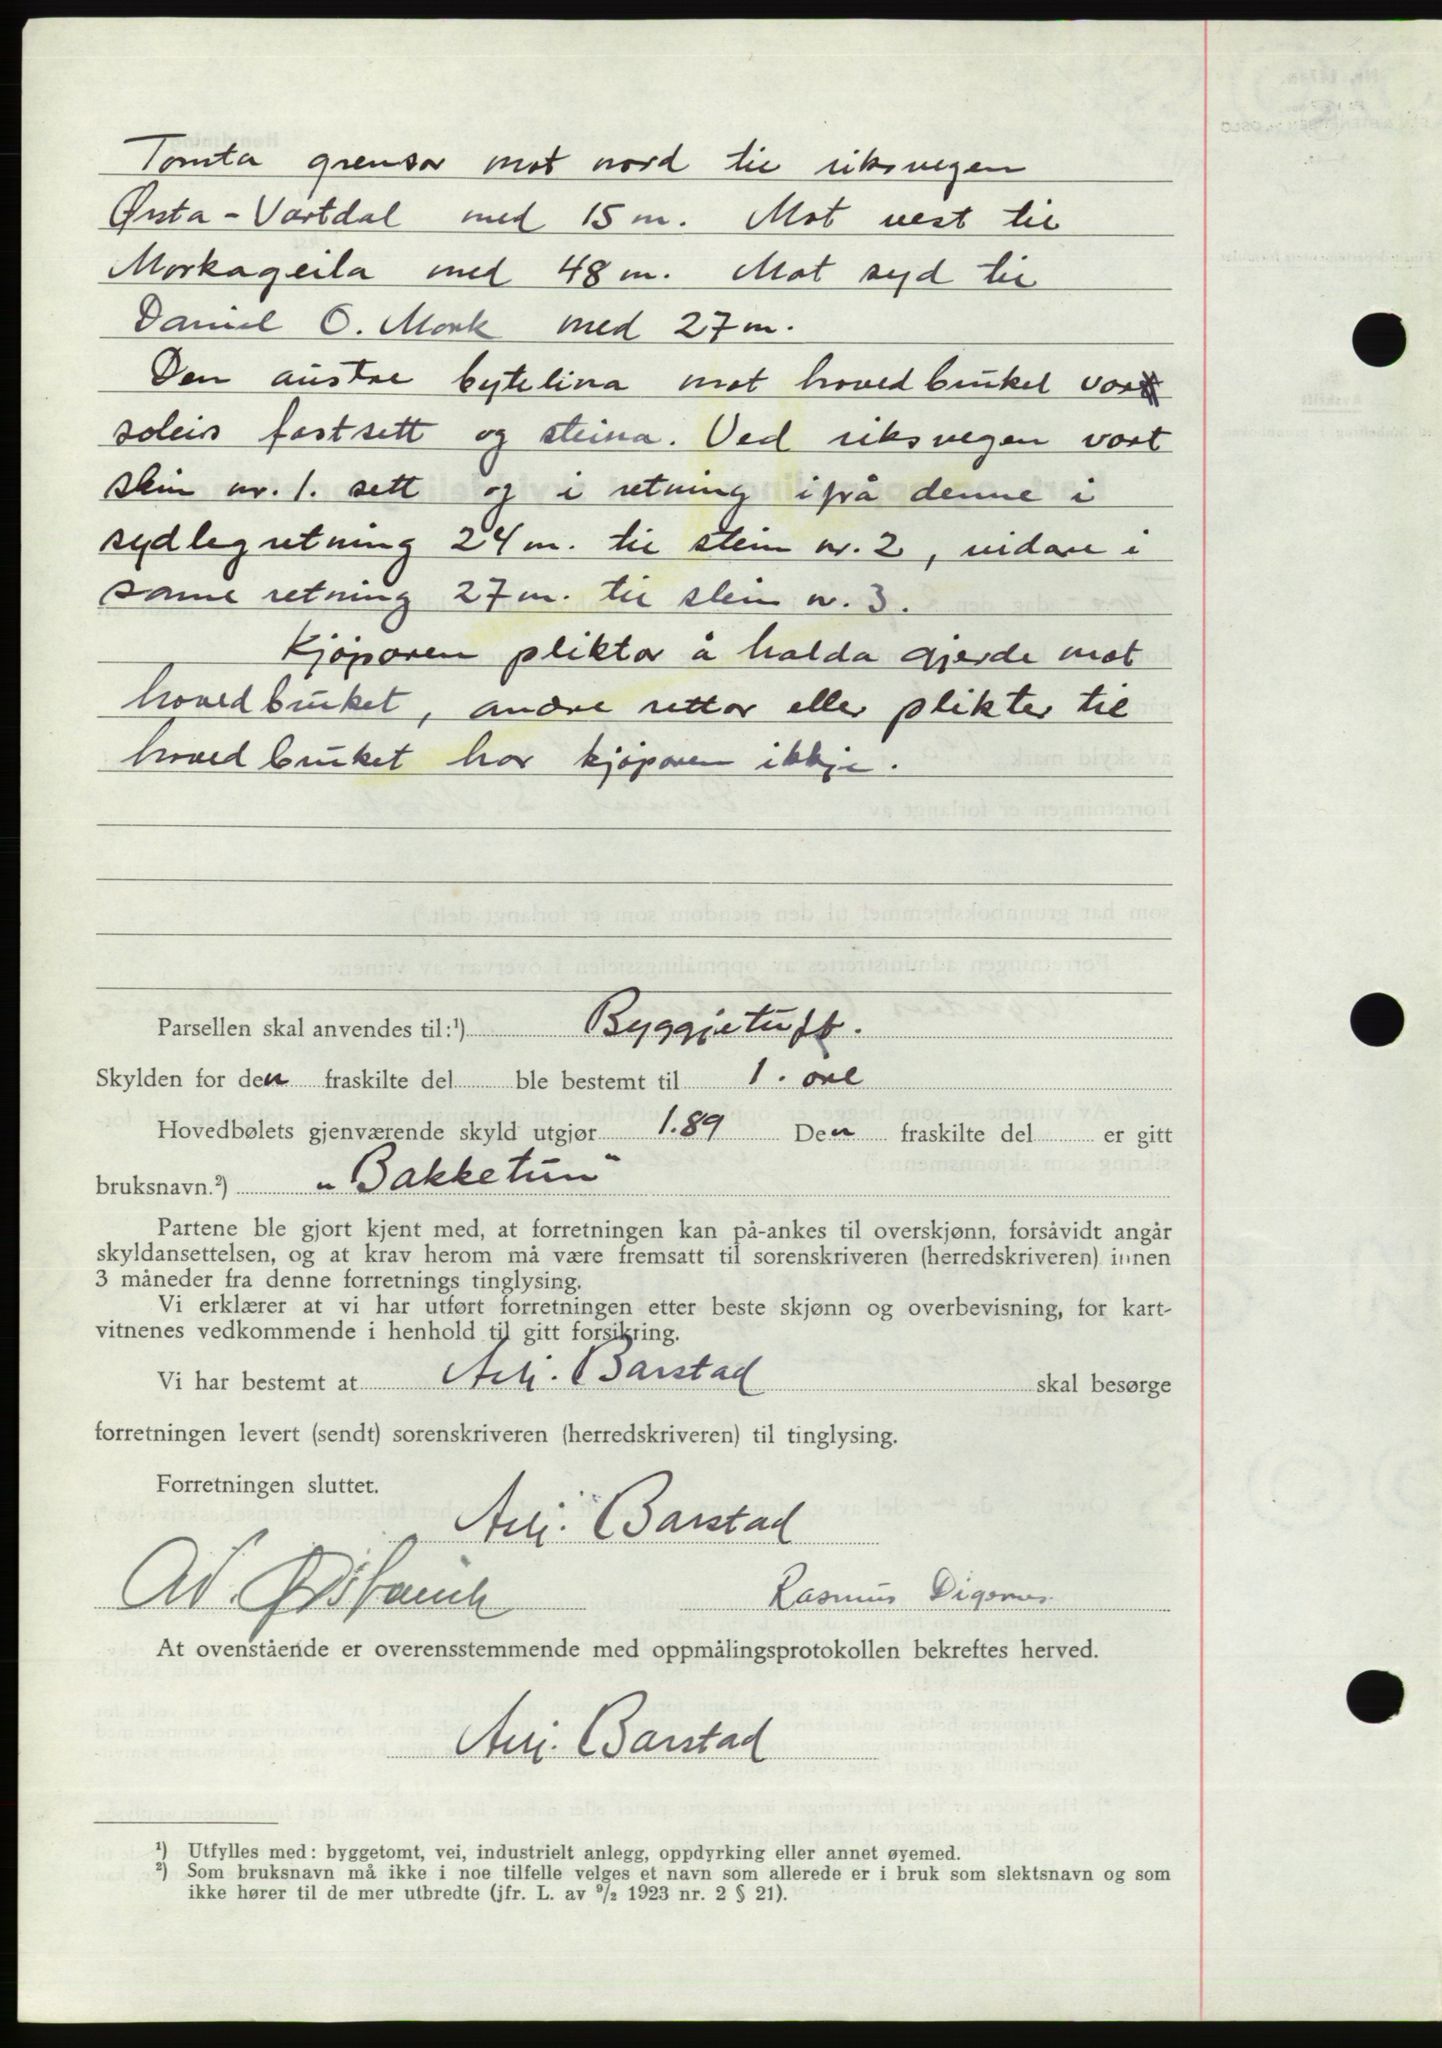 Tomta grensar mot nord til riksvegen
Ørsta - Vartdal med 15 m. Mot vest til
Morkageila med 48 m. Mot syd til
Daniel O. Mork med 27 m.
Den austre bytelina mot hovedbruket vart
soleis fastsett og steina. Ved riksvegen vart
stein nr. 1. sett og i retning ifrå denne i
sydleg retning 24 m. til stein nr. 2, vidare i
same retning 27 m. til stein nr. 3.
Kjøparen pliktar å halda gjerde mot
hovedbruket, andre rettar eller plikter til
hovedbruket har kjøparen ikkje.
Parsellen skal anvendes til:¹) Byggjetuft.
Skylden for den fraskilte del ble bestemt til 1. øre
Hovedbølets gjenværende skyld utgjør 1.89 Den fraskilte del er gitt
bruksnavn.²) "Bakketun"
Partene ble gjort kjent med, at forretningen kan på-ankes til overskjønn, forsåvidt angår
skyldansettelsen, og at krav herom må være fremsatt til sorenskriveren (herredskriveren) innen
3 måneder fra denne forretnings tinglysing.
Vi erklærer at vi har utført forretningen etter beste skjønn og overbevisning, for kart-
vitnenes vedkommende i henhold til gitt forsikring.
Vi har bestemt at Barstad skal besørge
forretningen levert (sendt) sorenskriveren (herredskriveren) til tinglysing.
Forretningen sluttet.
Barstad
Rasmus Digernes
At ovenstående er overensstemmende med oppmålingsprotokollen bekreftes herved.
Barstad
¹) Utfylles med: byggetomt, vei, industrielt anlegg, oppdyrking eller annet øyemed.
²) Som bruksnavn må ikke i noe tilfelle velges et navn som allerede er i bruk som slektsnavn og som
ikke hører til de mer utbredte (jfr. L. av 9/2 1923 nr. 2 § 21).